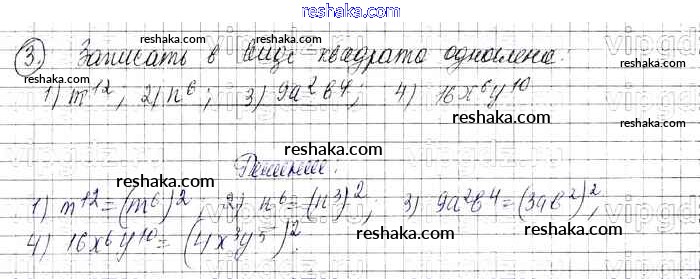 reshaka.com
3. Записать в виде квадрата одночлена:
1) m^12; 2) n^6; 3) 9a^2b^4; 4) 16x^6y^10
reshaka.com reshaka.com reshaka.com
Решение:
reshaka.com
1) m^12=(m^6)^2, 2) n^6=(n^3)^2; 3) 9a^2b^4=(3ab^2)^2,
reshaka.com reshaka.com
4) 16x^6y^10=(4x^3y^5)^2.
reshaka.com reshaka.com
reshaka.com